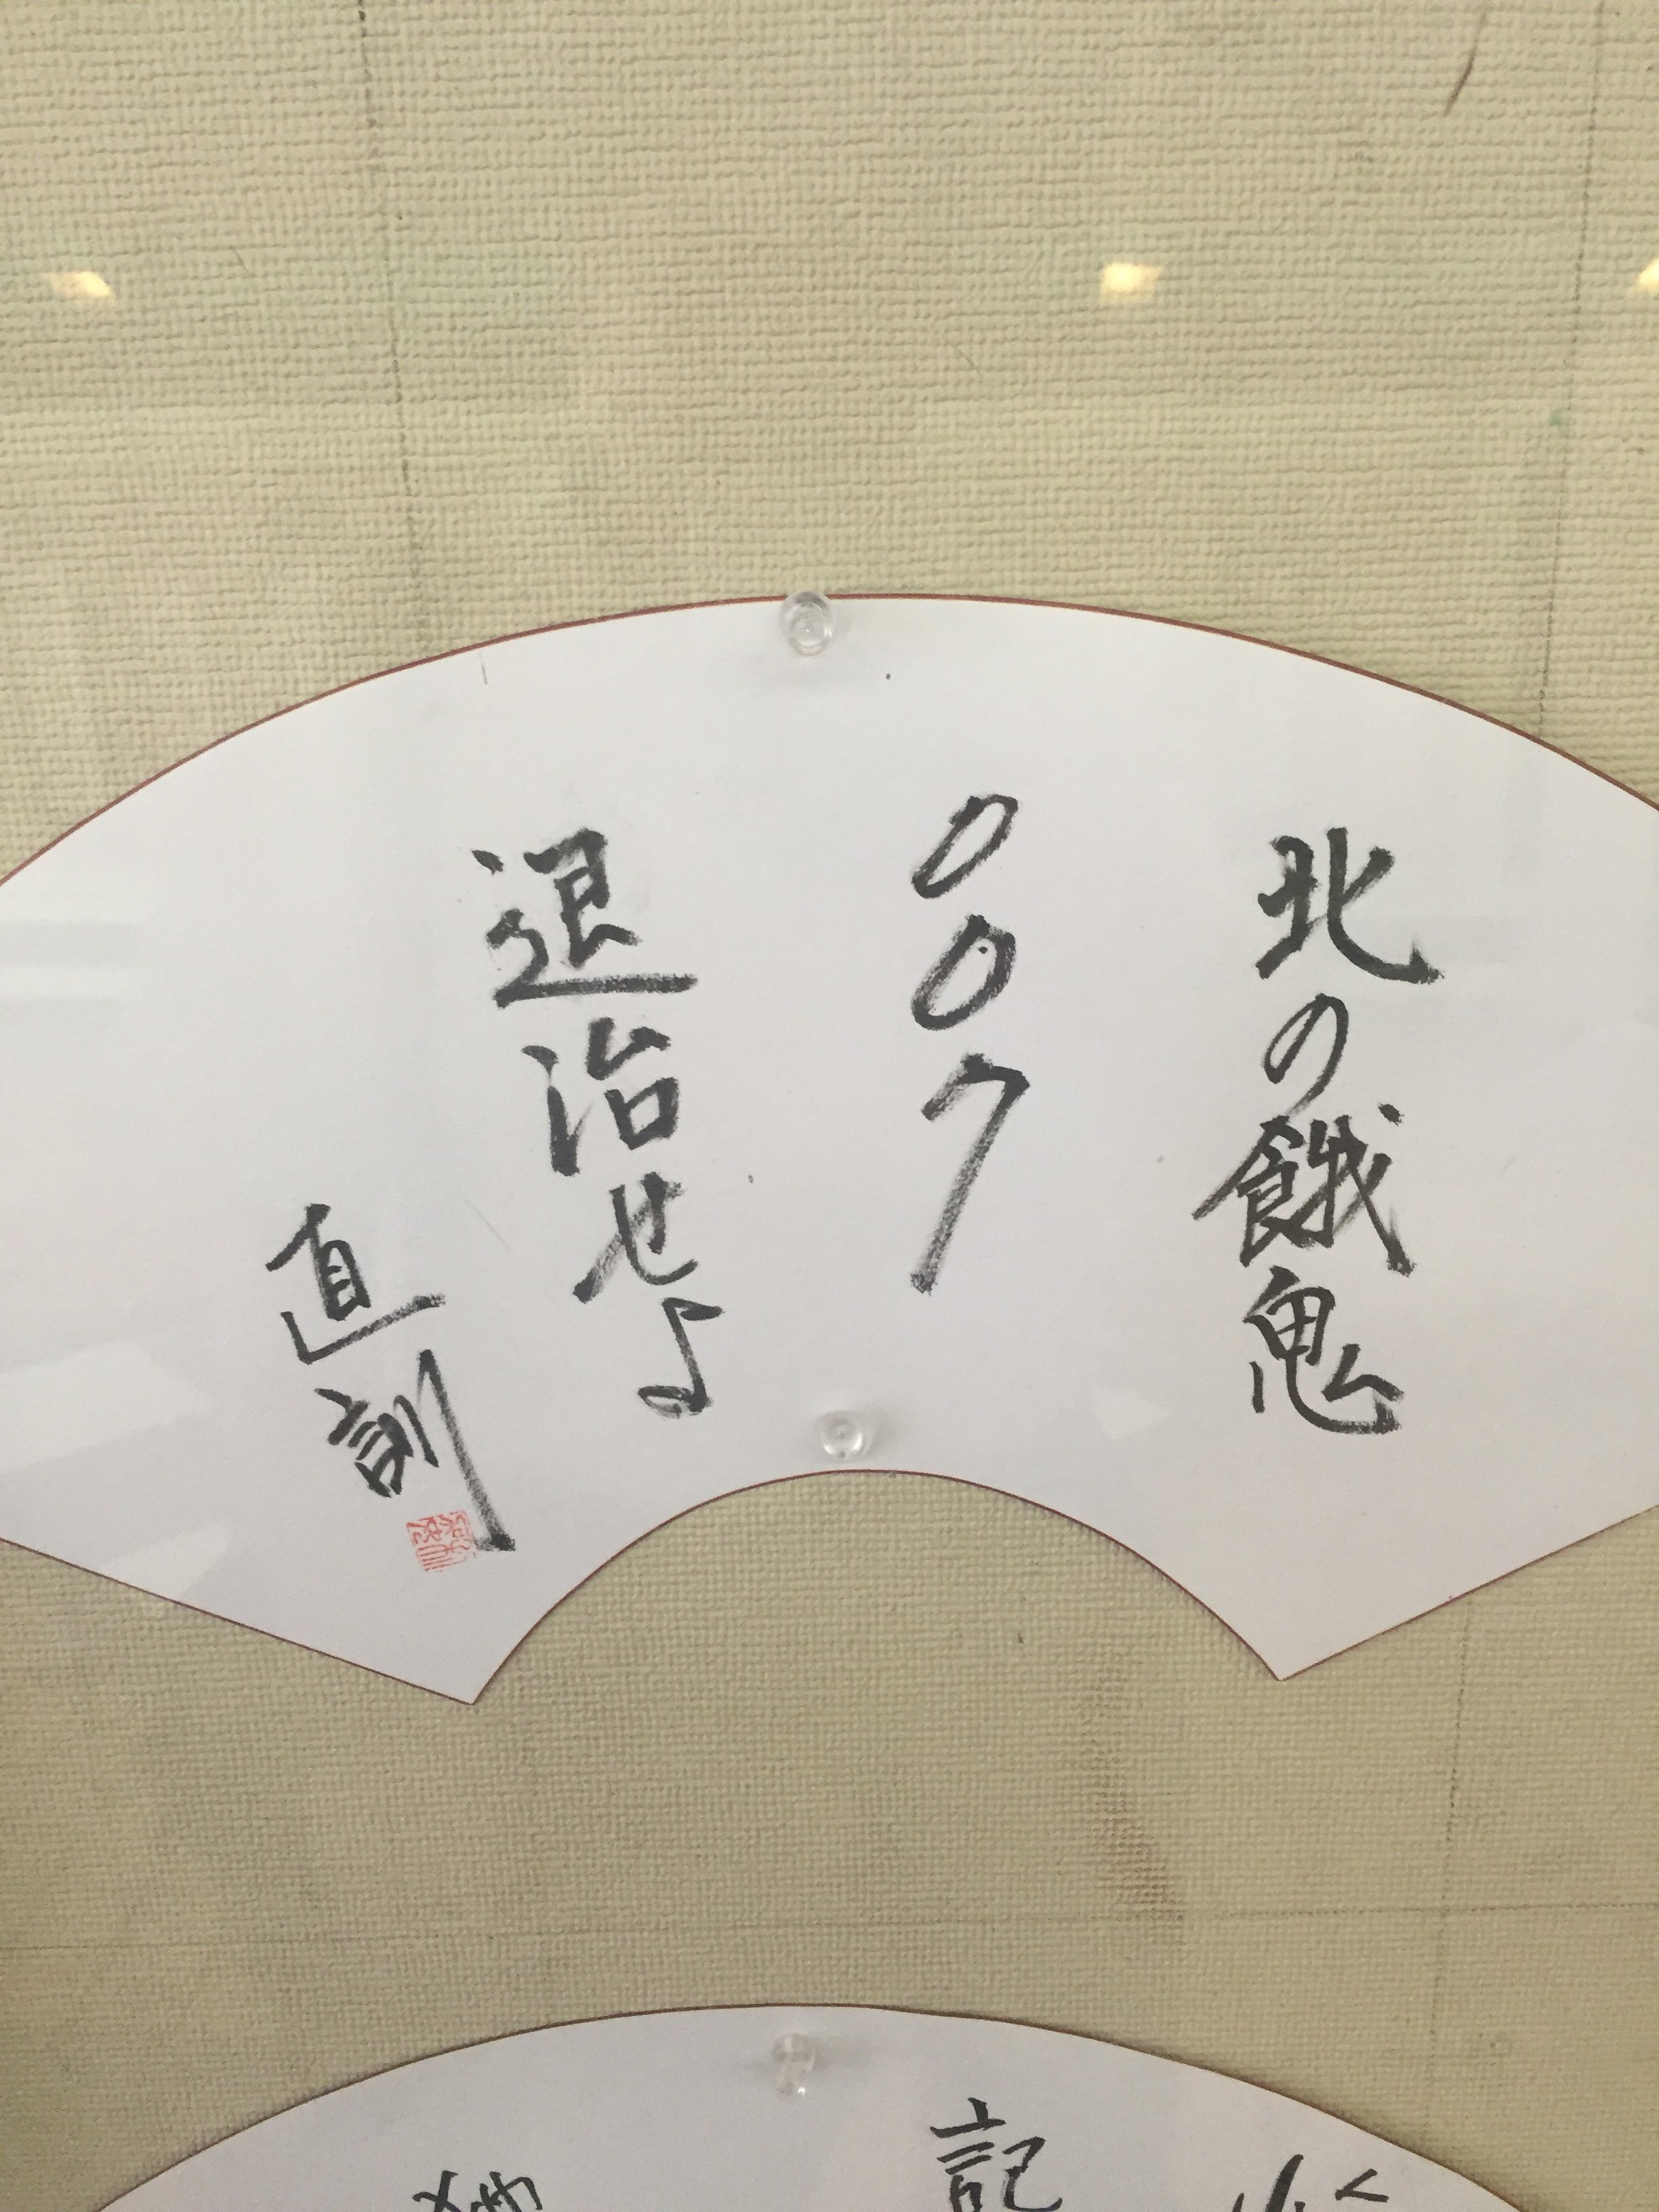 北の餓鬼
007
退治せよ
直訓
記